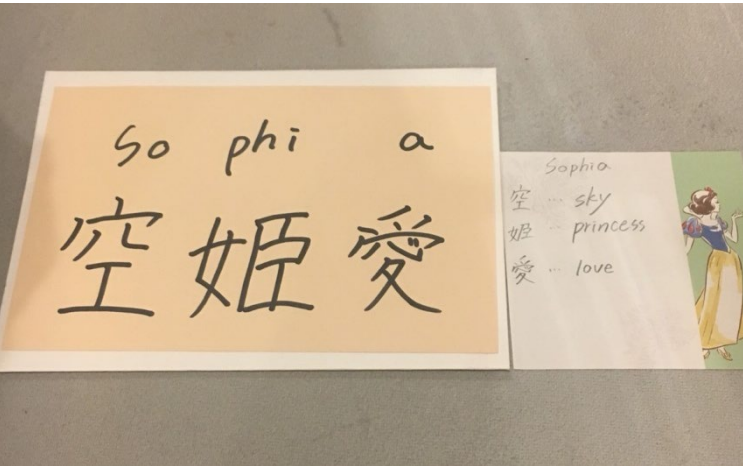 So phi a
空姫愛
Sophia
空 … sky
姫 … princess
愛 … love